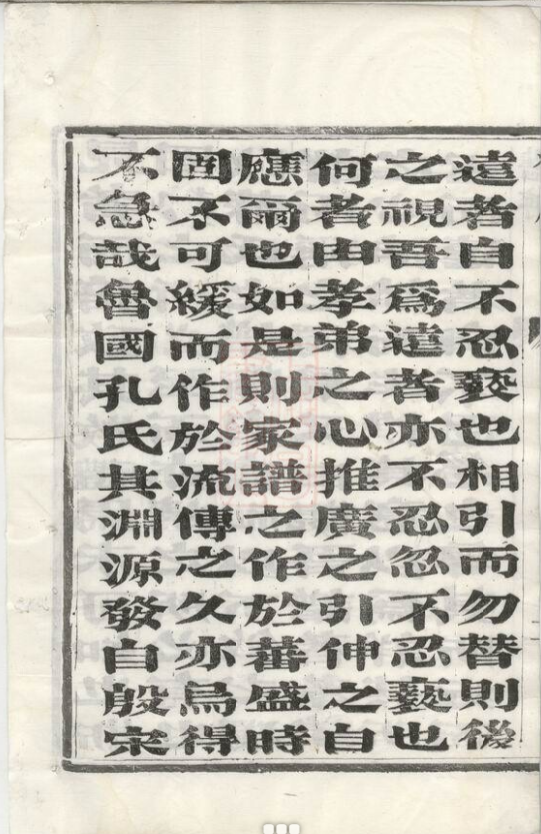 遠者自不忍褻也相引而勿替則後
之視吾爲遠者亦不忍忽不忍褻也
何者由孝弟之心推廣之引伸之自
應爾也如是則家譜之作於蕃盛時
固不可緩而作於流傳之久亦烏得
不急哉魯國孔氏其淵源發自殷宋